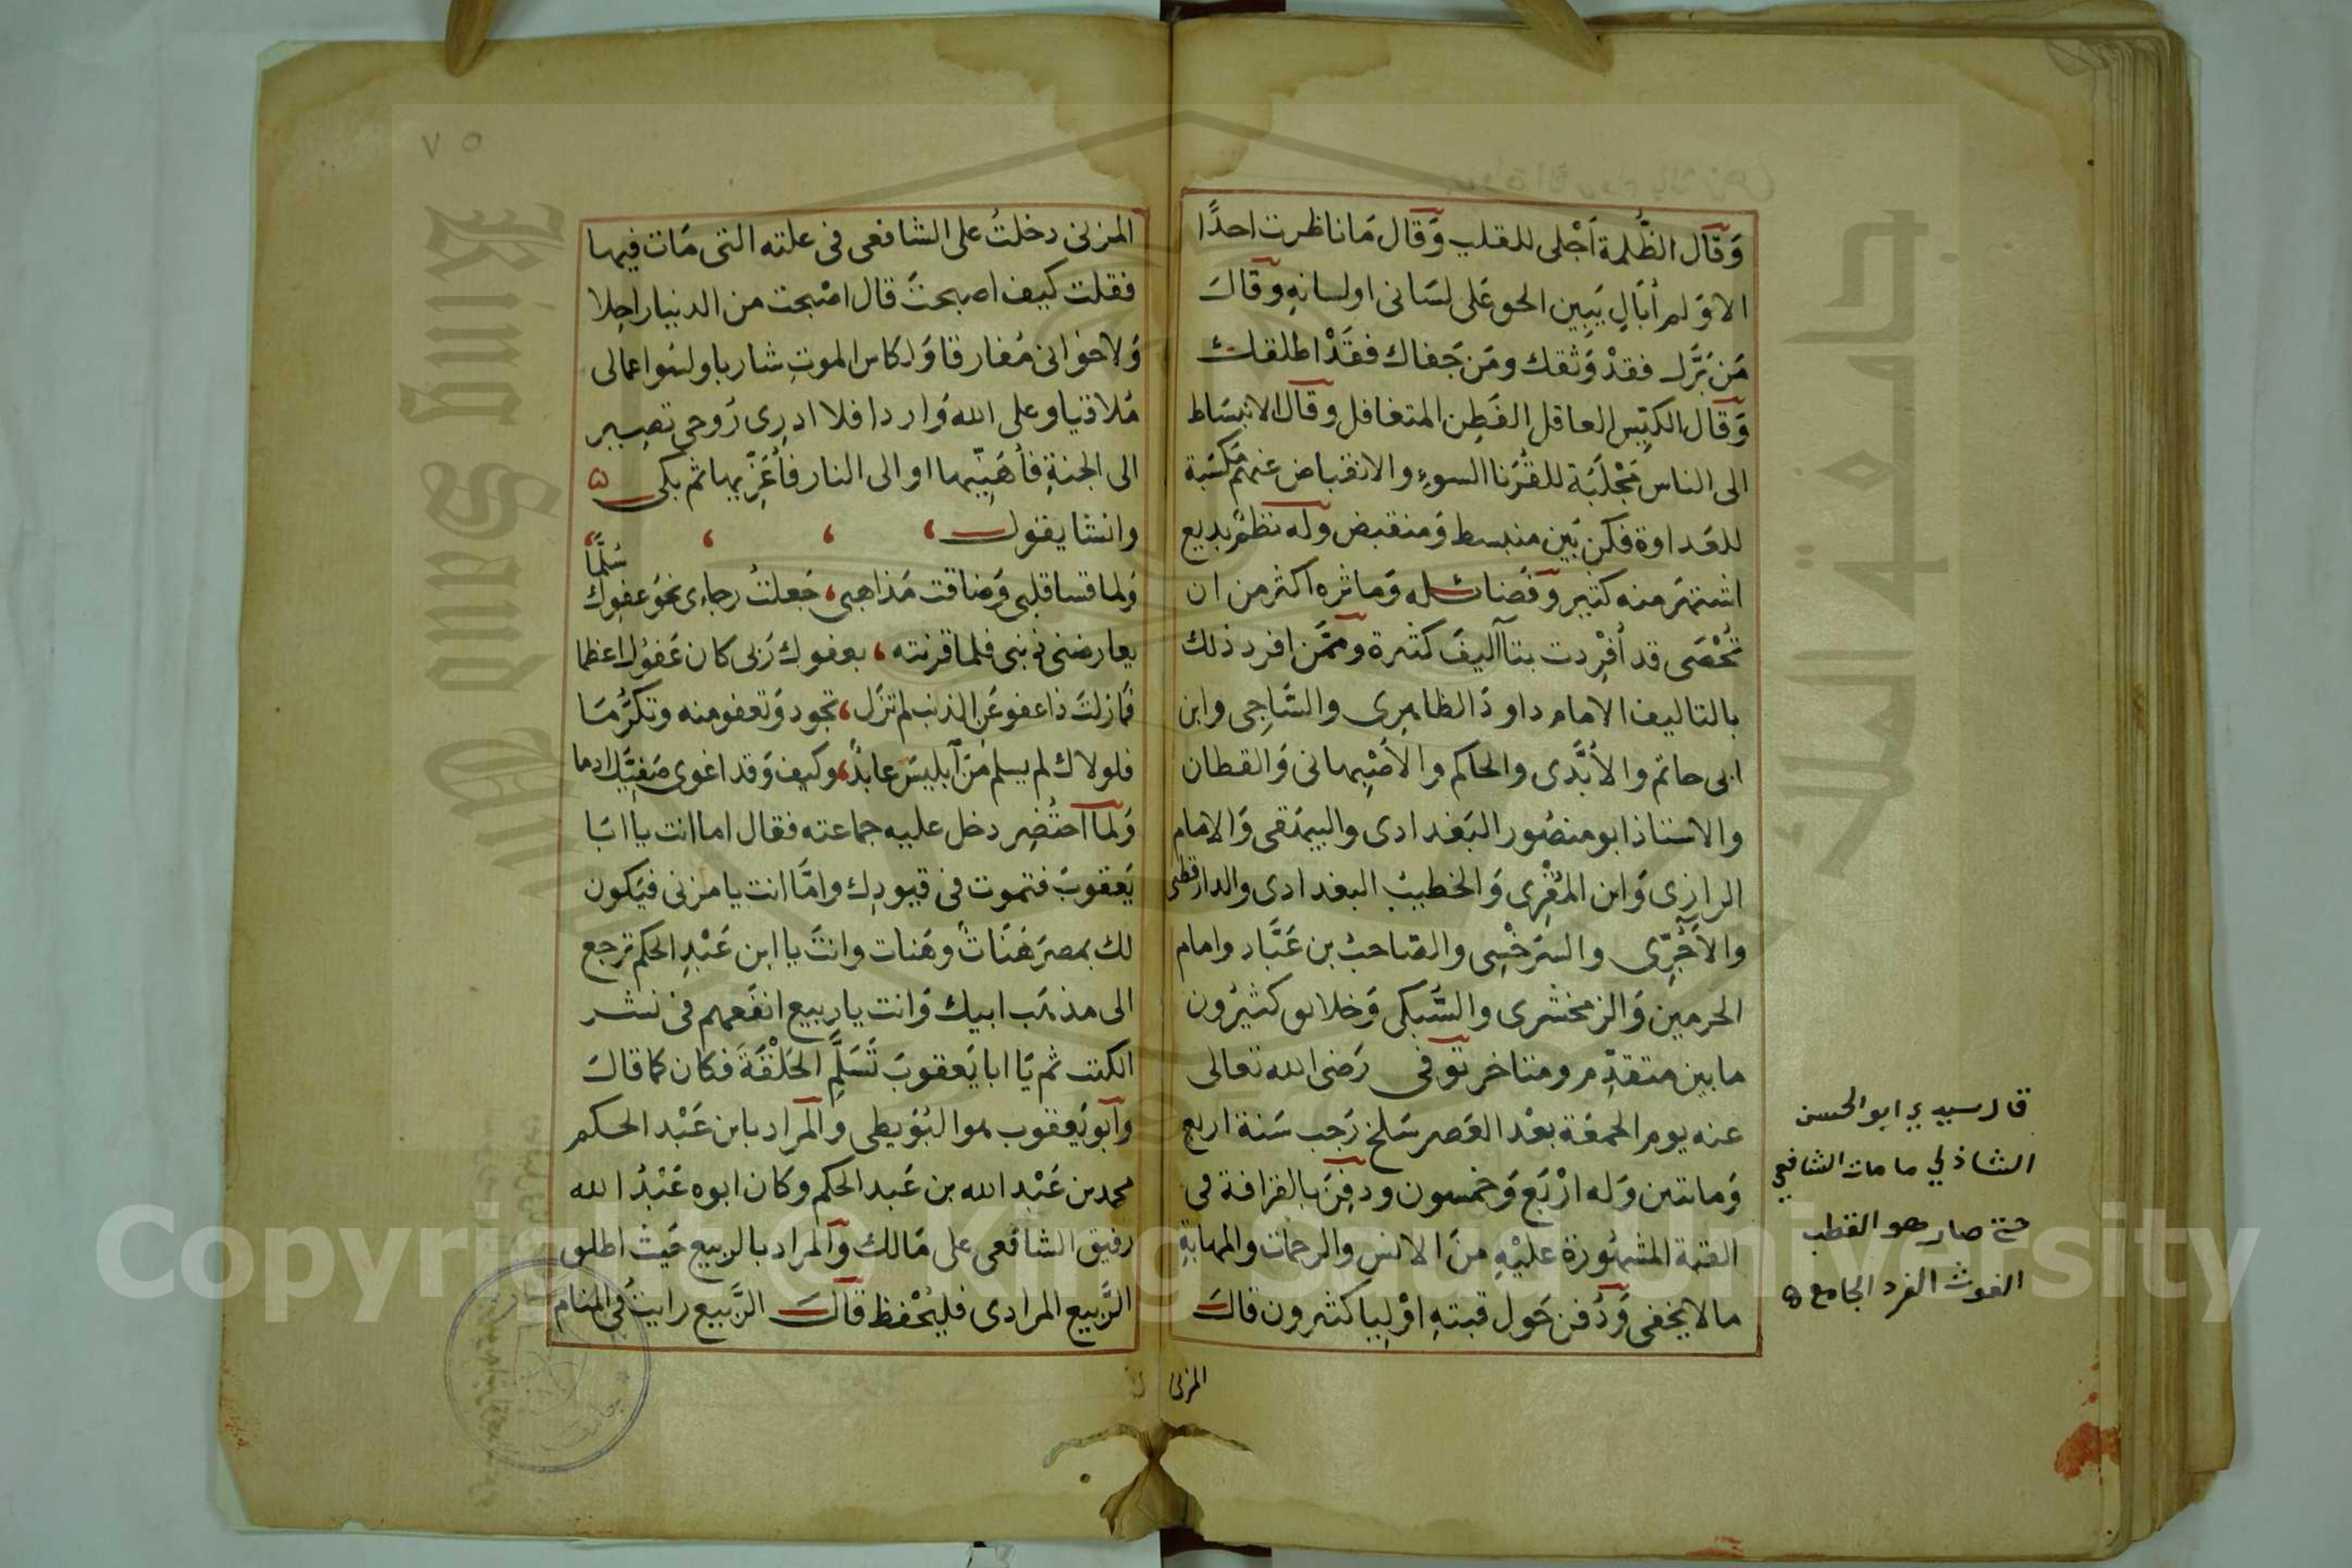 وَقَال الظُّلمة اَجْلى للقلب وَقَال مَا ناظرت احدًا
الا وَلم اُبَالِ يَبِين الحق عَلى لسَانى او لسانهِ وقال
مَن بَرَّك فقدْ وَثقك ومَن جَفاك فقَدْ اطلقك
وَقَال الكيّس العاقل الفَطِن المتغافل وقال الانبسَاط
الى الناس مَجْلَبَة للقُرَنا السوءِ والانقباض عنهم مَكسَبة
للعَداوة فكن بَين منبسط وَمنقبض وله نظمٌ بديع
اشتهَر منه كثير وَفَضائله وَماثره اكثر من ان
تُحْصَى قد اُفرِدت بتآليفَ كثيرة وممَّن افرد ذلك
بالتاليف الامام داودَ الظاهِرِى والسَّاجِى وابن
ابى حاتم والأبَّدى والحاكم والأصْبِهانى وَالقطان
والاستاذ ابو منصُور البَغدادى والبيهَقى وَالامام
الرازى وَابن المُقْرِى وَالخطيبُ البغدادى والدارقطنى
والآجُرِّى والسَرَخْسِى والصَاحبُ بن عَبَّاد وامام
الحرمين وَالزمخشرى والسُّبكى وَخلايق كثيرُون
ما بين متقدِّم ومتاخر توفى رَضى الله تعالى
عنه يوم الجمعَة بعْد العَصر سَلخ رَجب سَنة اربع
وَمائتين وَله ارْبَع وَخمسون ودفِنَ بالقرافة فى
القبة المشهُورَة عليْهِ منَ الانس والرحمات والمهابةِ
ما لا يخفى وَدُفن حَول قبتهِ اوْليا كثيرون قال
المزنى
قال سيدي ابو الحسن
الشاذلي ما مات الشافعي
حتى صار هو القطب
الغوث الفرد الجامع
٧٥
المزنى دخلتُ على الشافعى فى علته التى مَات فيها
فقلت كيف اصبحتَ قال اصْبحت من الدنيا راحِلا
وَلاخوانى مُفارقا وَلكاس الموتِ شاربا ولسُوا عمالى
مُلاقيا وعلى الله وَاردا فلا ادرِى رَوحى تصِير
الى الجنةِ فأهَنِّيها او الى النار فأعَزِّيها ثم بكى
وانشا يقول
وَلما قسا قلبى وَضاقت مَذاهبى جَعلتُ رجاءى نحوَ عفوِك سُلَّمًا
يعارضنى ذنبى فلما قرنته بعفوك رَبى كان عَفوُك اعظما
فمازلتَ ذا عفو عَن الذنب لم تزَل تجود وَتعفو منه وتكرُّمَا
فلولاك لم يسلم مِن ابليسَ عابدٌ وكيف وَقد اغوى صَفيَّك ادما
وَلما احتُضِر دخل عليه جماعته فقال اما انت يا ابَا
يَعقوبَ فتموت فى قيودِك وامَّا انت يا مزنى فيَكون
لك بمصرَ هَنَاتٌ وهَنات وانتَ يا ابن عَبْدِ الحكم ترجع
الى مذهَب ابيك وَانت يا ربيع انفَعهم فى نشر
الكتب ثم يَا ابا يَعقوبَ تَسَلَّمِ الحَلْقَةَ فكان كما قال
وابو يَعقوب هو البُوَيطى والمراد بابن عَبْد الحكم
محمد بن عَبْد الله بن عَبد الحكم وكان ابوه عَبْدُ الله
رفيق الشافعى على مَالك وَالمراد بالربيع حَيث اطلق
الرَّبيع المرادى فليُحْفظ قال الرَّبيع رايت فى المنام
Copyright © King Saud University
King Saud University
جامعة الملك سعود